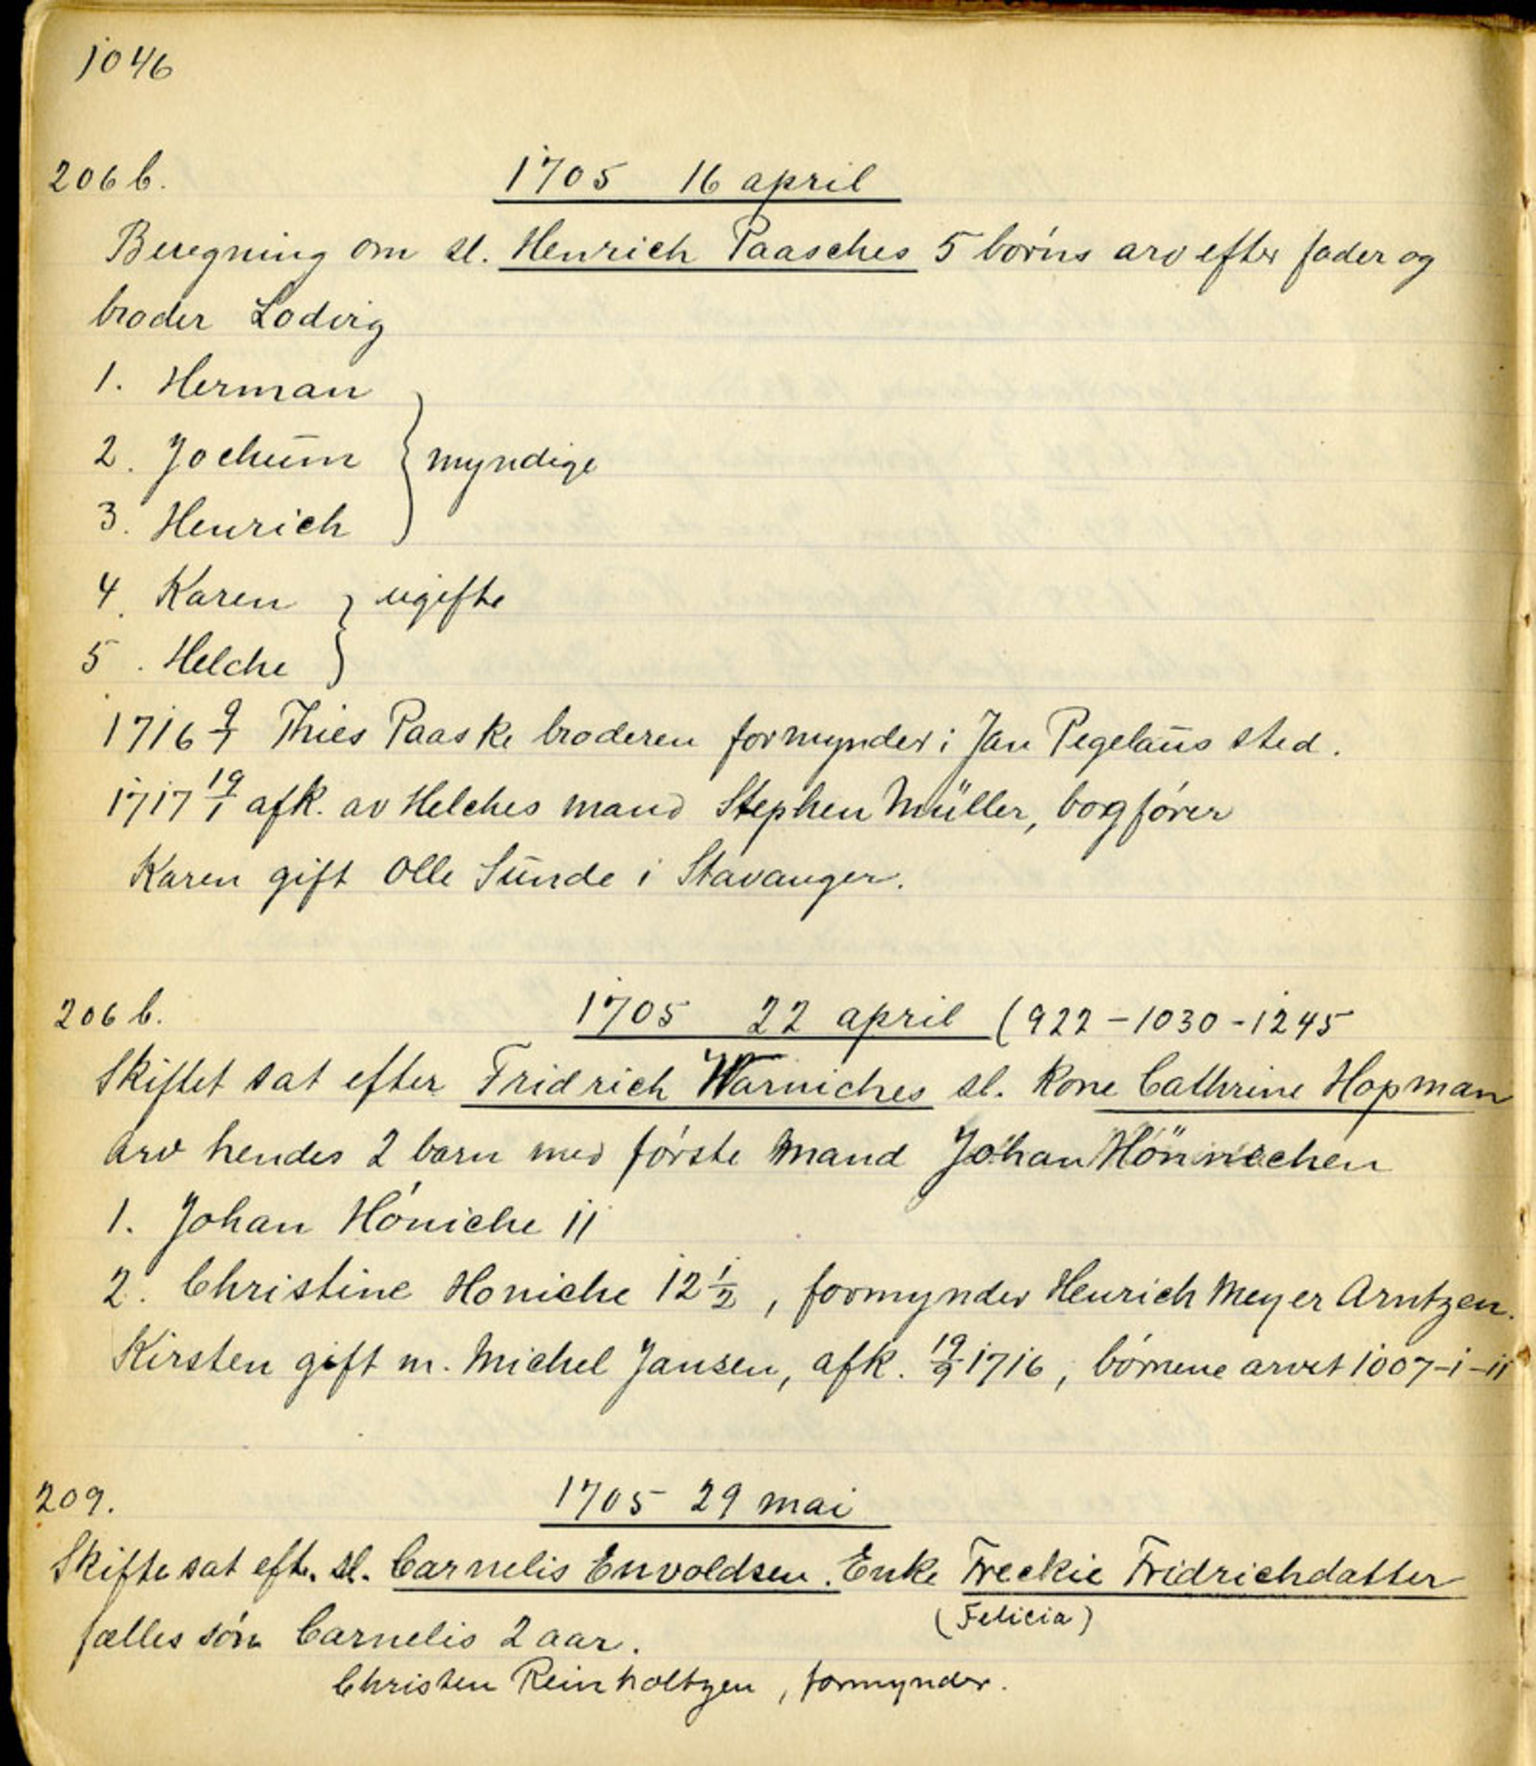 1046
206 b. 1705 16 april
Beregning om sl. Henrich Paasches 5 børns arv efter fader og
broder Lodvig
1. Herman
2. Jochum } myndige
3. Henrich
4. Karen } ugifte
5. Helche
1716 9/7 Thies Paaske broderen formynder i Jan Pegelaus sted.
1717 19/1 afk. av Helches mand Stephen Müller, bogfører
Karen gift Olle Sunde i Stavanger.
206 b. 1705 22 april (922-1030-1245
Skiftet sat efter Fridrich Warniches sl. kone Cathrine Hopman
arv hendes 2 barn med første mand Johan Hönnichen
1. Johan Hóniche 11
2. Christine Honiche 12 1/2, formynder Henrich Meyer Arntzen.
Kirsten gift m. Michel Jansen, afk. 19/9 1716, børnene arvet 1007-1-11
209. 1705 29 mai
Skifte sat eft. sl. Carnelis Envoldsen. Enke Freckie Fridrichdatter
(Felicia)
fælles søn Carnelis 2 aar.
Christen Reinholtzen, formynder.